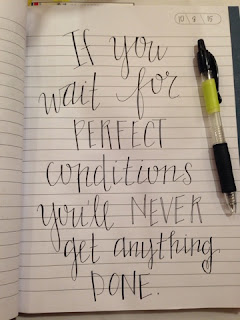 10 8 15
If you
wait for
PERFECT
conditions
you'll NEVER
get anything
DONE.